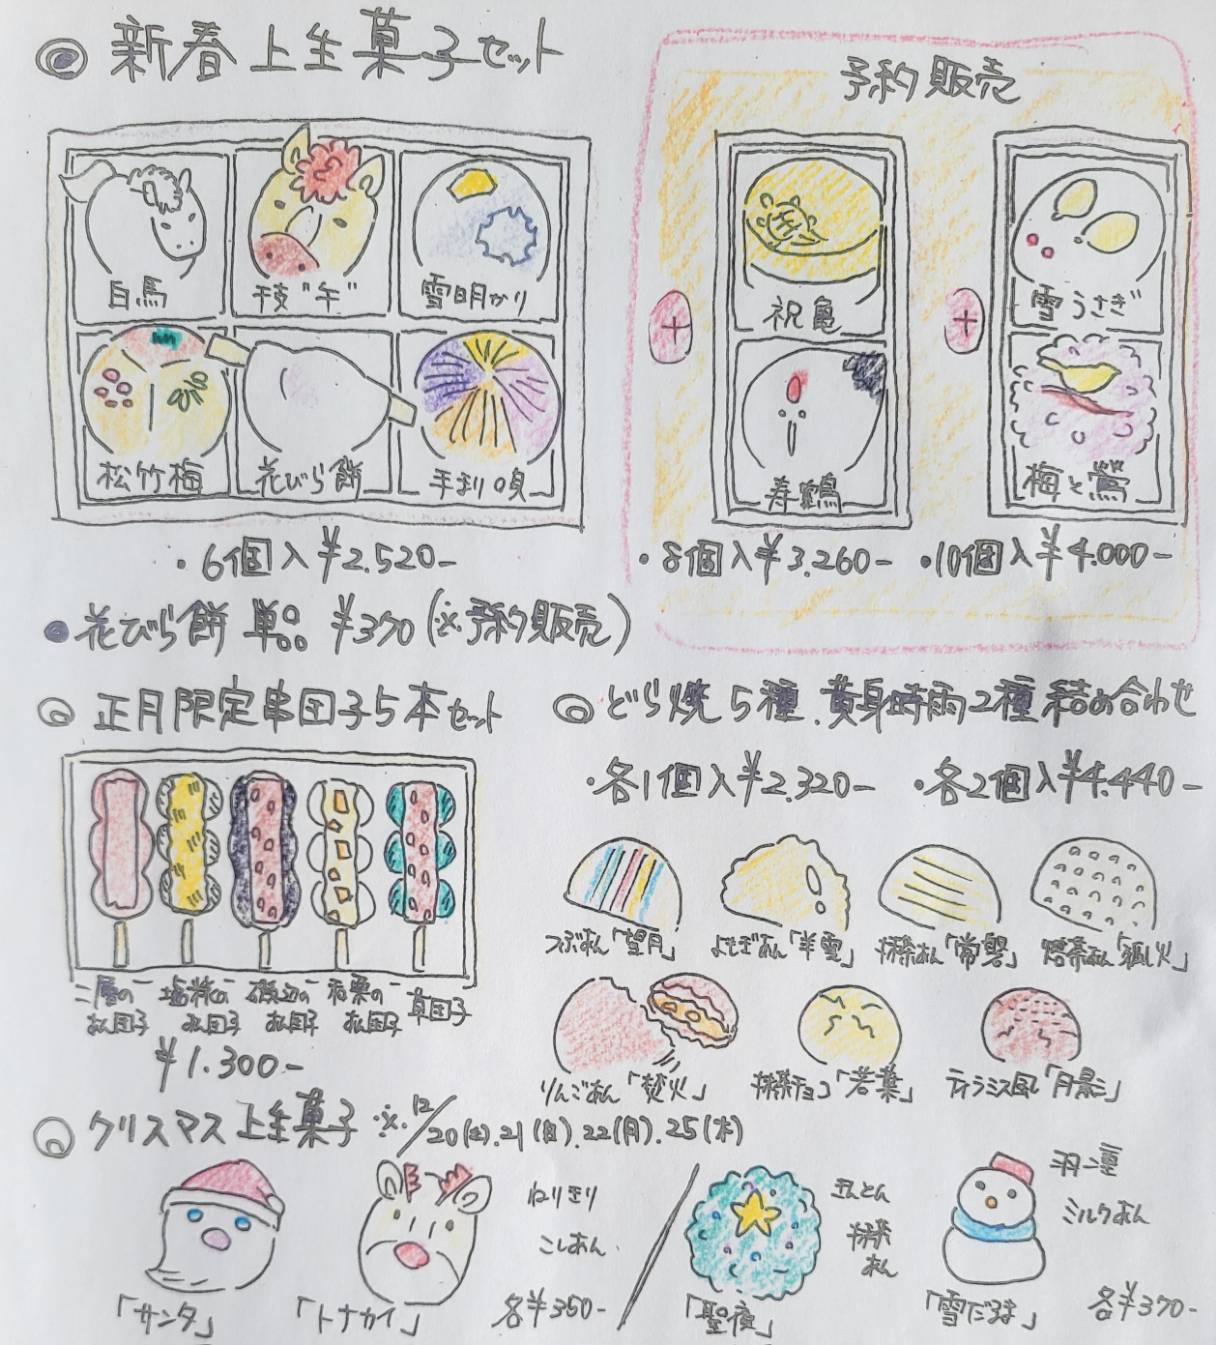 ◎新春上生菓子セット
予約販売
白馬
干支"午"
雪明かり
祝亀
雪うさぎ
松竹梅
花びら餅
手まり唄
寿鶴
梅と鶯
+
+
・6個入¥2.520-
・8個入¥3.260-
・10個入¥4.000-
●花びら餅 単品 ¥370(※予約販売)
◎正月限定串団子5本セット
◎どら焼5種、黄身時雨2種詰め合わせ
・各1個入¥2.320-
・各2個入¥4.440-
つぶあん「望月」
よもぎあん「羊雲」
抹茶あん「常磐」
焙茶あん
二層のあん団子
磯辺のあん団子
和栗のあん団子
草団子
¥1.300-
りんごあん「焚火」
抹茶チョコ「若葉」
ティラミス風「月影」
◎クリスマス上生菓子 ※12/20(土).21(日).22(月).25(木)
「サンタ」
「トナカイ」
ねりきり
こしあん
各¥350-
「聖夜」
きんとん
抹茶
あん
「雪だるま」
羽二重
ミルクあん
各¥370-